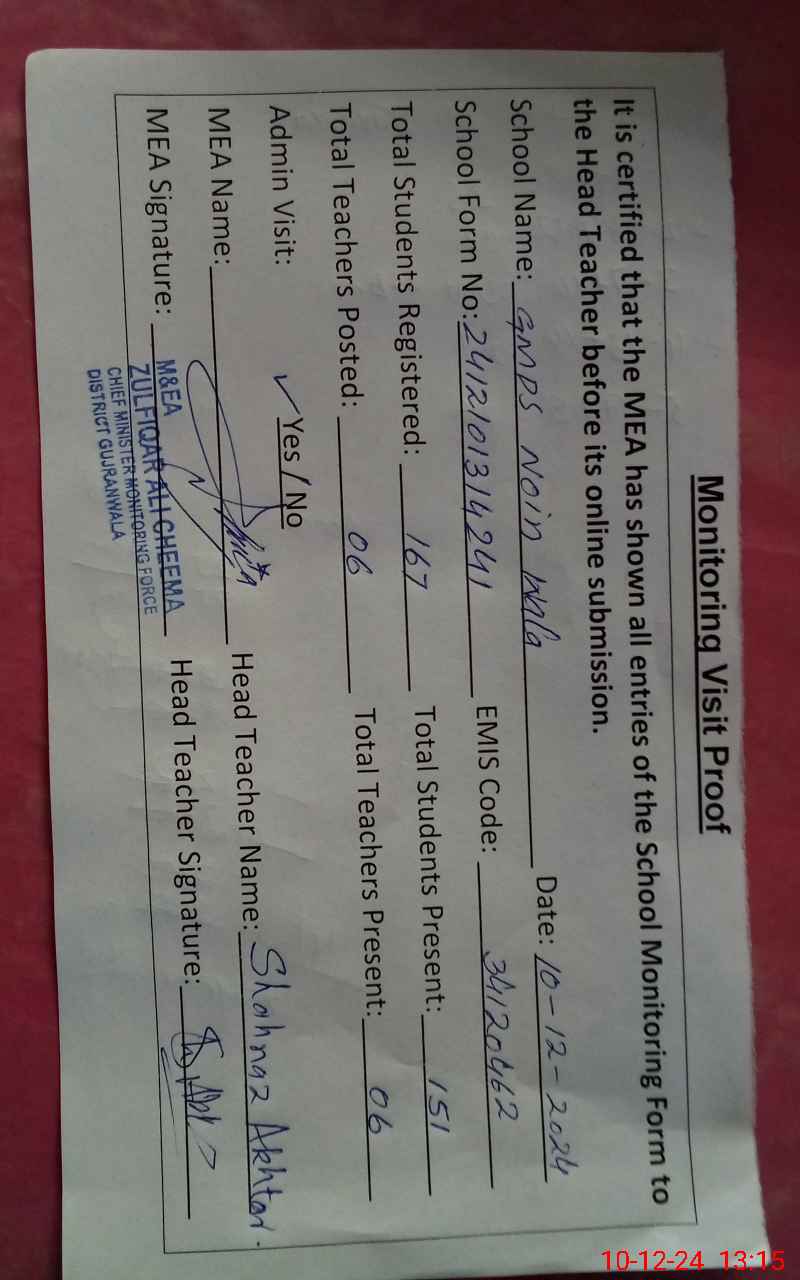 Monitoring Visit Proof
It is certified that the MEA has shown all entries of the School Monitoring Form to
the Head Teacher before its online submission.
School Name: GMPS Noin Wala Date: 10-12-2024
School Form No: 2412101314241 EMIS Code: 34120462
Total Students Registered: 167 Total Students Present: 151
Total Teachers Posted: 06 Total Teachers Present: 06
Admin Visit: ✓ Yes / No
MEA Name: Head Teacher Name: Shahnaz Akhtar.
MEA Signature: Head Teacher Signature:
M&EA
ZULFIQAR ALI CHEEMA
CHIEF MINISTER MONITORING FORCE
DISTRICT GUJRANWALA
10-12-24 13:15